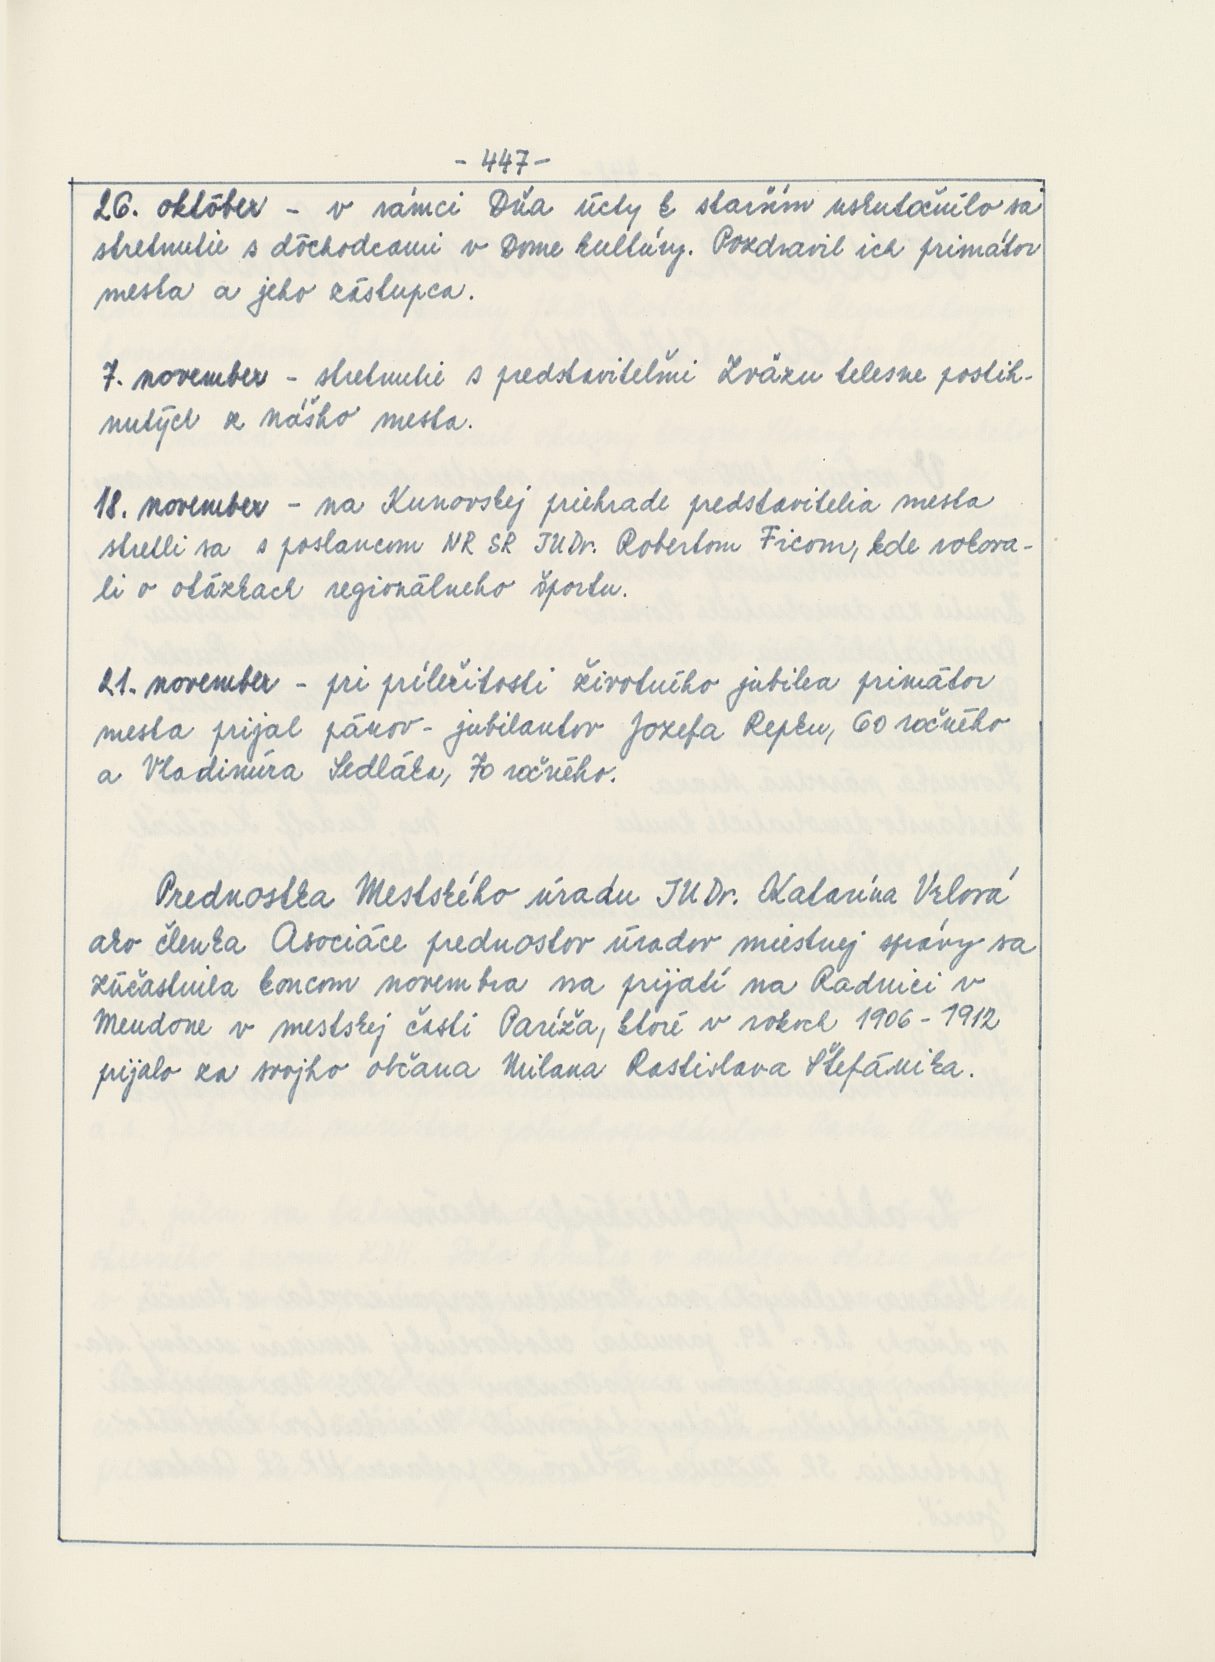 - 447 -
26. október - v rámci Dňa úcty k starším uskutočnilo sa
stretnutie s dôchodcami v Dome kultúry. Pozdravil ich primátor
mesta a jeho zástupca.
7. november - stretnutie s predstaviteľmi Zväzu telesne postih-
nutých z nášho mesta.
18. november - na Kunovskej priehrade predstavitelia mesta
stretli sa s poslancom NR SR JUDr. Robertom Ficom, kde rokova-
li o otázkach regionálneho športu.
21. november - pri príležitosti životného jubilea primátor
mesta prijal pánov - jubilantov Jozefa Repku, 60 ročného
a Vladimíra Sedláka, 70 ročného.
Prednostka Mestského úradu JUDr. Katarína Vrlová
ako členka Asociáce prednostov úradov miestnej správy sa
zúčastnila koncom novembra na prijatí na Radnici v
Meudone v mestskej časti Paríža, ktoré v rokoch 1906 - 1912
prijalo za svojho občana Milana Rastislava Štefánika.